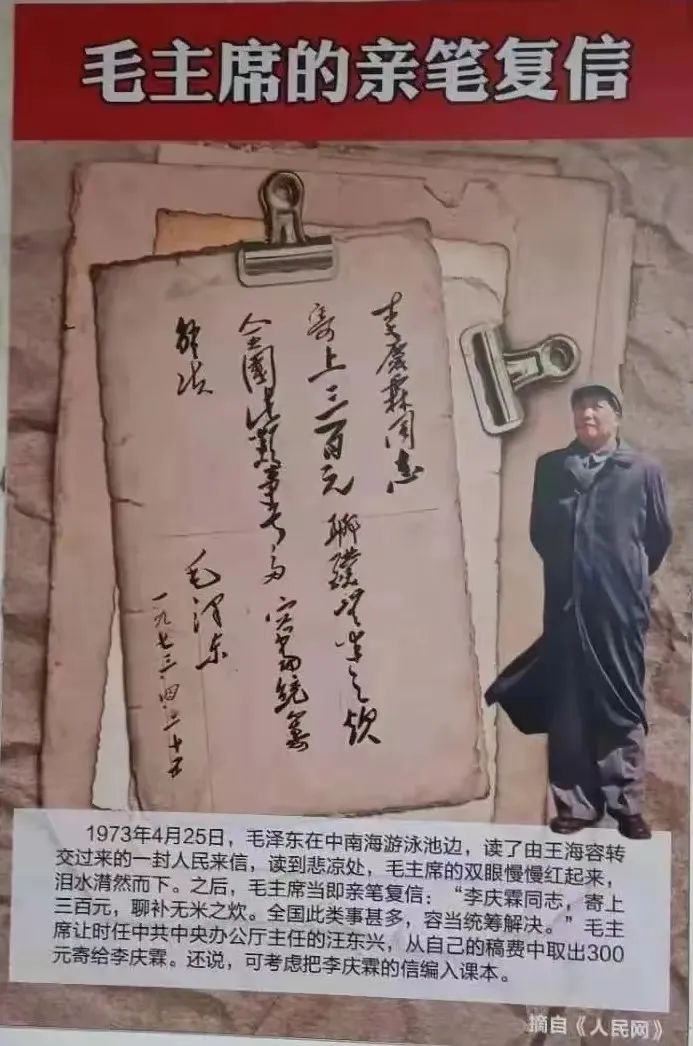 毛主席的亲笔复信
李庆霖同志
寄上三百元 聊补无米之炊
全国此类事甚多 容当统筹
解决
毛泽东
一九七三·四·二十五
1973年4月25日，毛泽东在中南海游泳池边，读了由王海容转
交过来的一封人民来信，读到悲凉处，毛主席的双眼慢慢红起来，
泪水潸然而下。之后，毛主席当即亲笔复信：“李庆霖同志，寄上
三百元，聊补无米之炊。全国此类事甚多，容当统筹解决。”毛主
席让时任中共中央办公厅主任的汪东兴，从自己的稿费中取出300
元寄给李庆霖。还说，可考虑把李庆霖的信编入课本。
摘自《人民网》